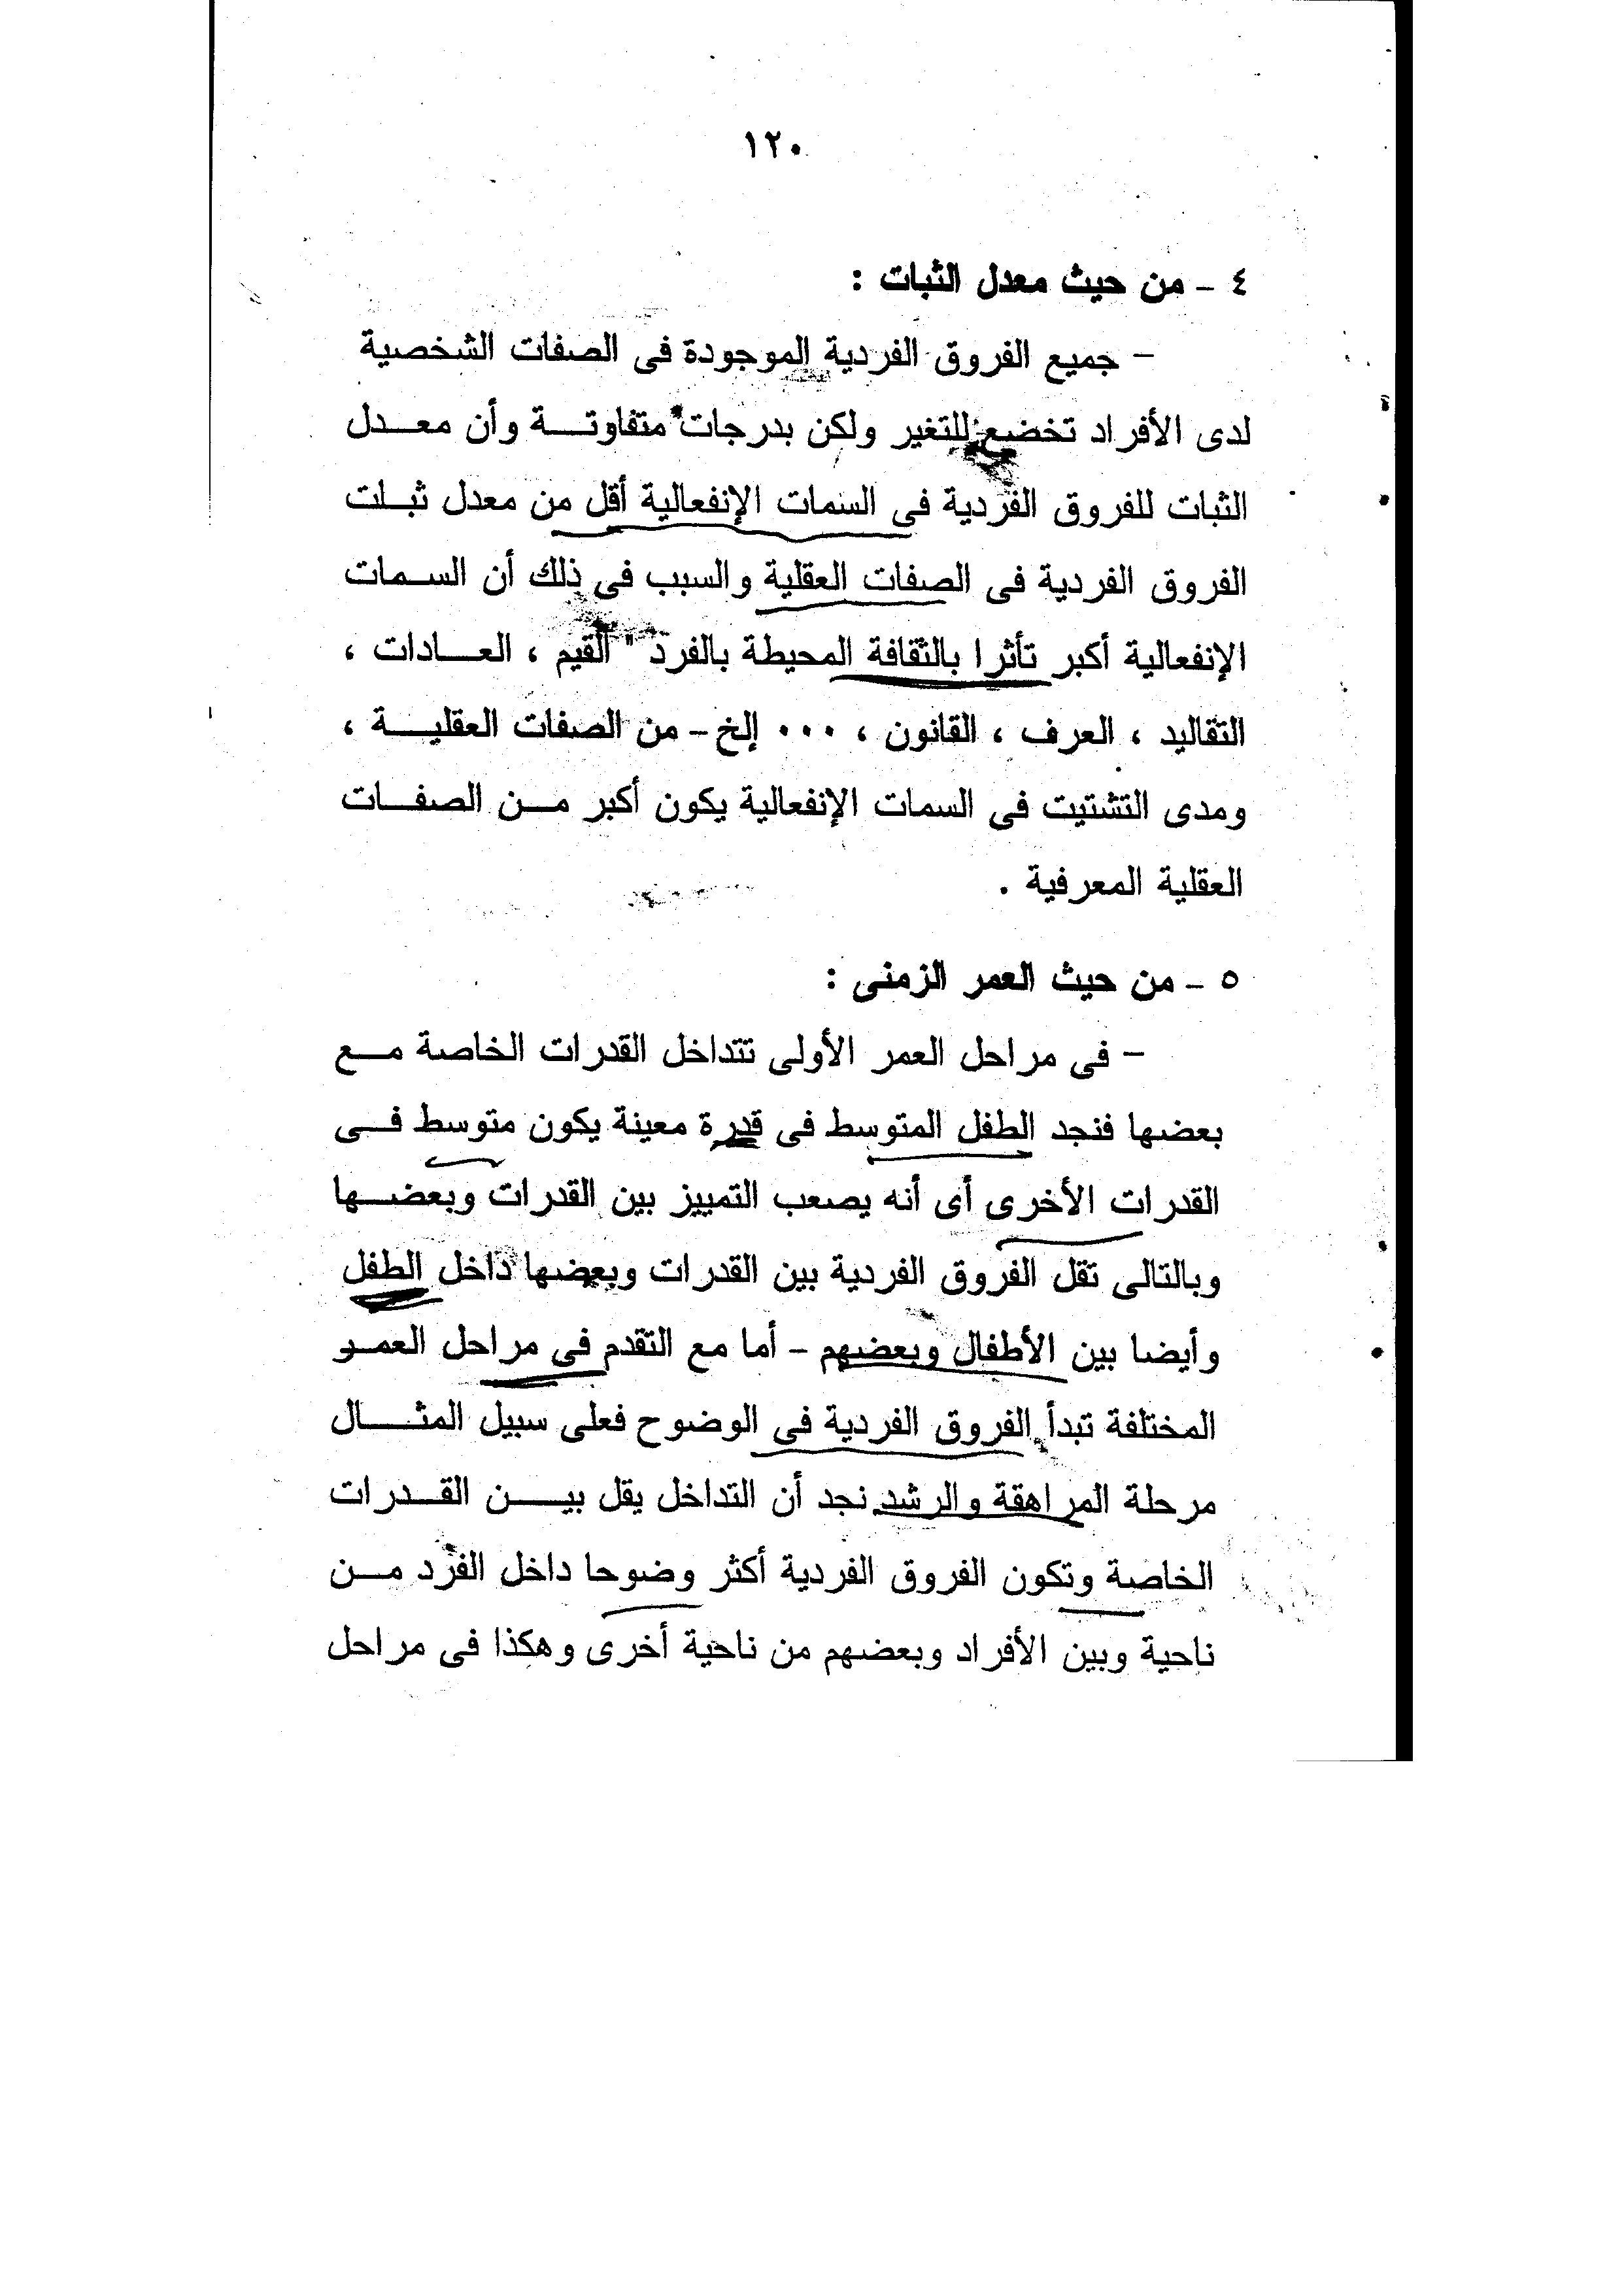 ١٢٠
٤ - من حيث معدل الثبات :
- جميع الفروق الفردية الموجودة فى الصفات الشخصية
لدى الأفراد تخضع للتغير ولكن بدرجات متفاوتة وأن معدل
الثبات للفروق الفردية فى السمات الإنفعالية أقل من معدل ثبلت
الفروق الفردية فى الصفات العقلية والسبب فى ذلك أن السمات
الإنفعالية أكبر تأثرا بالثقافة المحيطة بالفرد " القيم ، العادات ،
التقاليد ، العرف ، القانون ، ٠٠٠ إلخ - من الصفات العقلية ،
ومدى التشتيت فى السمات الإنفعالية يكون أكبر من الصفات
العقلية المعرفية .
٥ - من حيث العمر الزمنى :
- فى مراحل العمر الأولى تتداخل القدرات الخاصة مع
بعضها فنجد الطفل المتوسط فى قدرة معينة يكون متوسط فى
القدرات الأخرى أى أنه يصعب التمييز بين القدرات وبعضها
وبالتالى تقل الفروق الفردية بين القدرات وبعضها داخل الطفل
وأيضا بين الأطفال وبعضهم - أما مع التقدم فى مراحل العمو
المختلفة تبدأ الفروق الفردية فى الوضوح فعلى سبيل المثال
مرحلة المراهقة والرشد نجد أن التداخل يقل بين القدرات
الخاصة وتكون الفروق الفردية أكثر وضوحا داخل الفرد من
ناحية وبين الأفراد وبعضهم من ناحية أخرى وهكذا فى مراحل